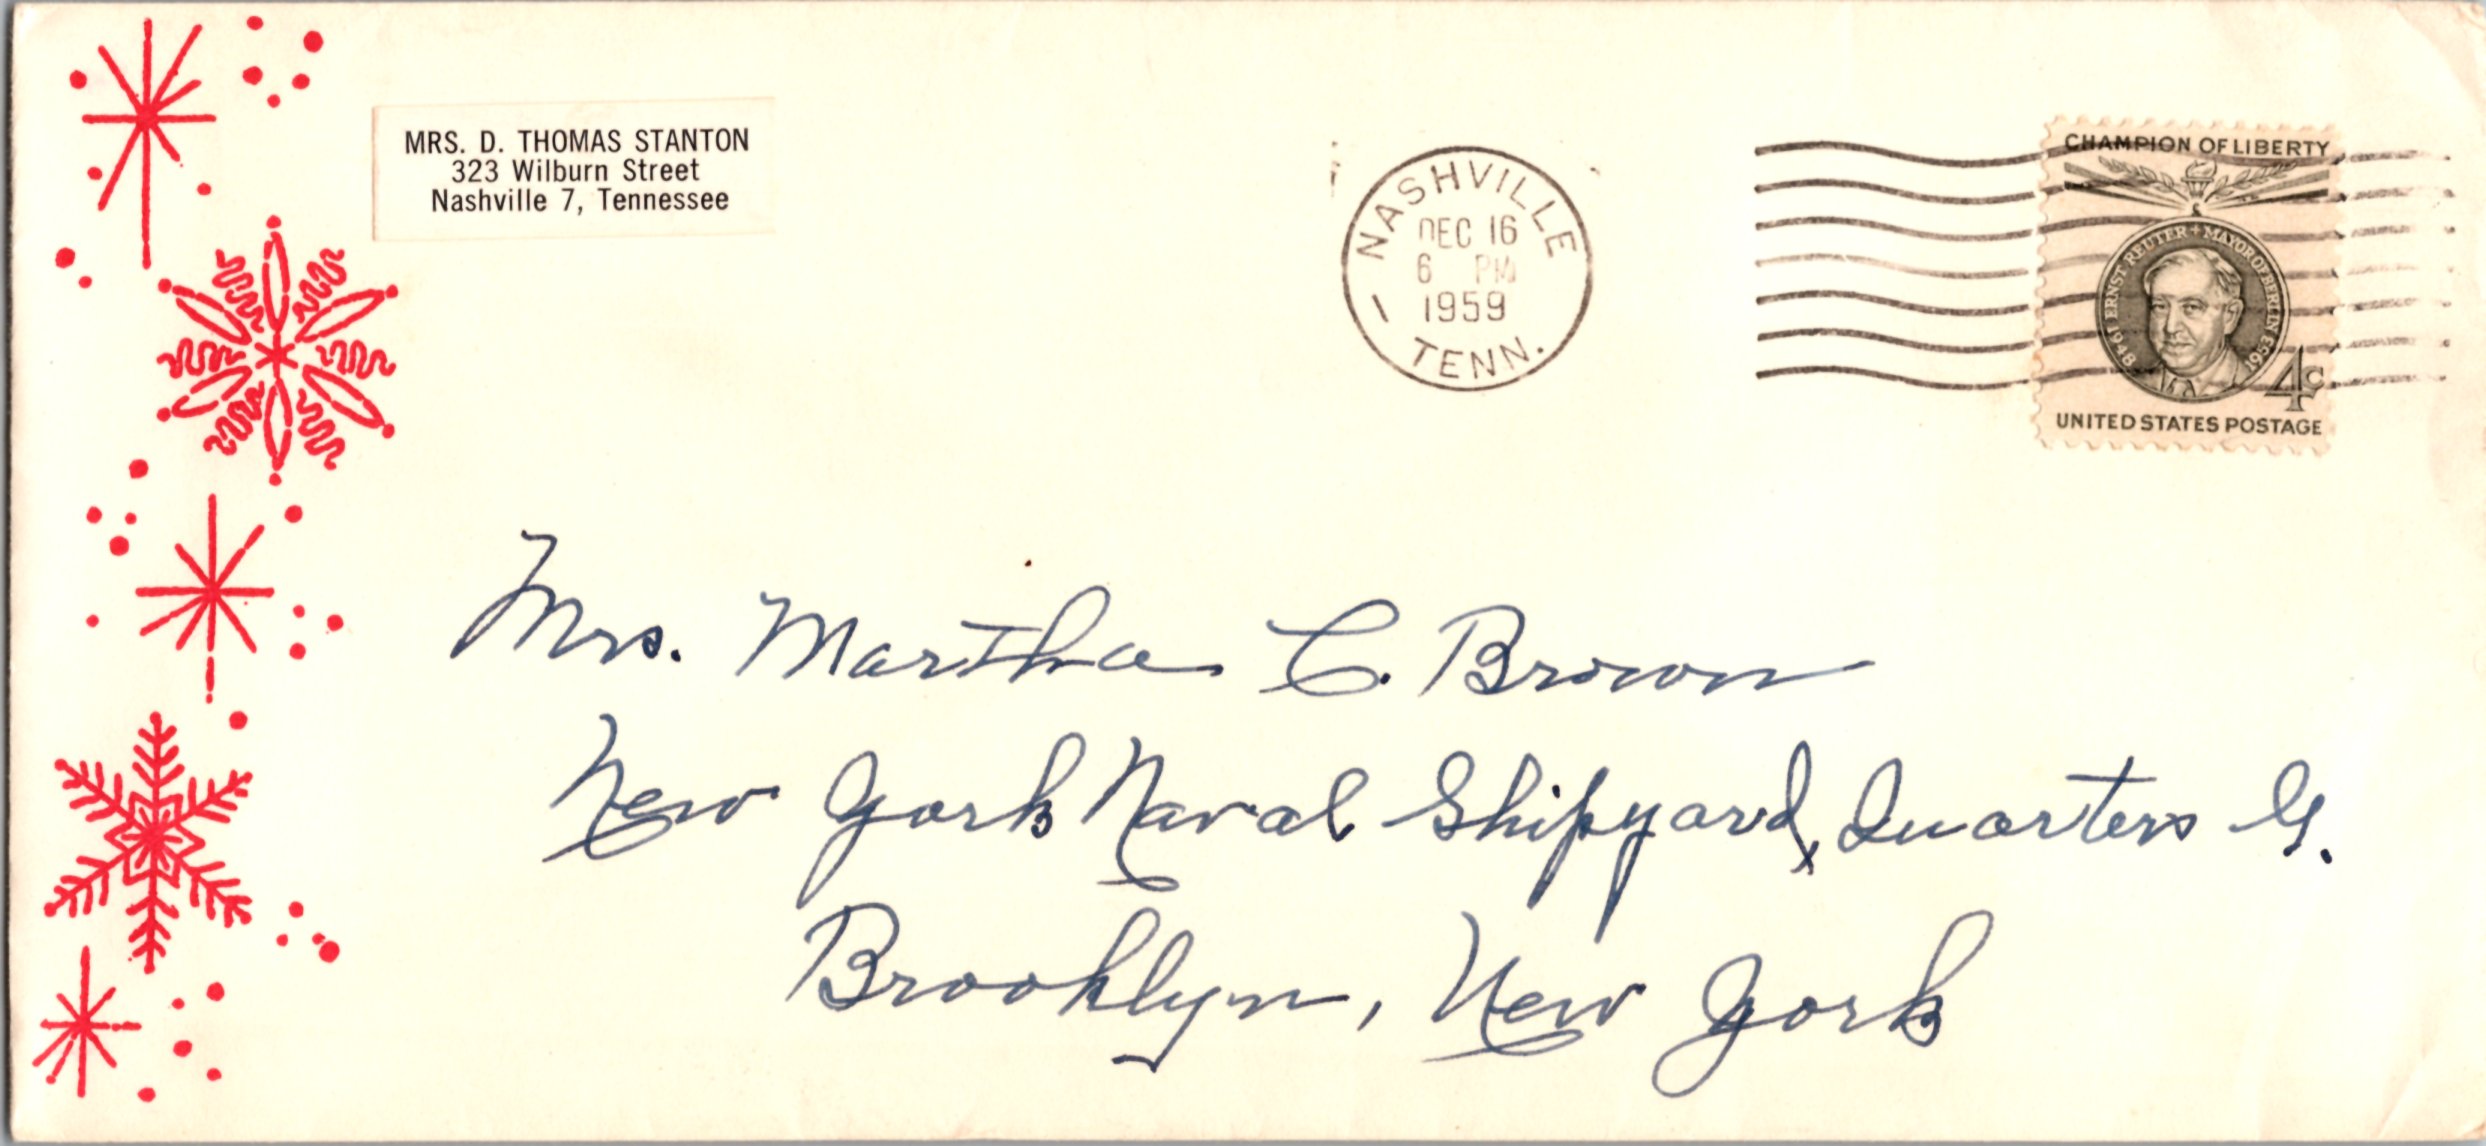 MRS. D. THOMAS STANTON
323 Wilburn Street
Nashville 7, Tennessee
NASHVILLE
DEC 16
6 PM
1959
1
TENN.
CHAMPION OF LIBERTY
1948 ERNST REUTER + MAYOR OF BERLIN 1953
4c
UNITED STATES POSTAGE
Mrs. Martha C. Brown
New York Naval Shipyard, Quarters G.
Brooklyn, New York